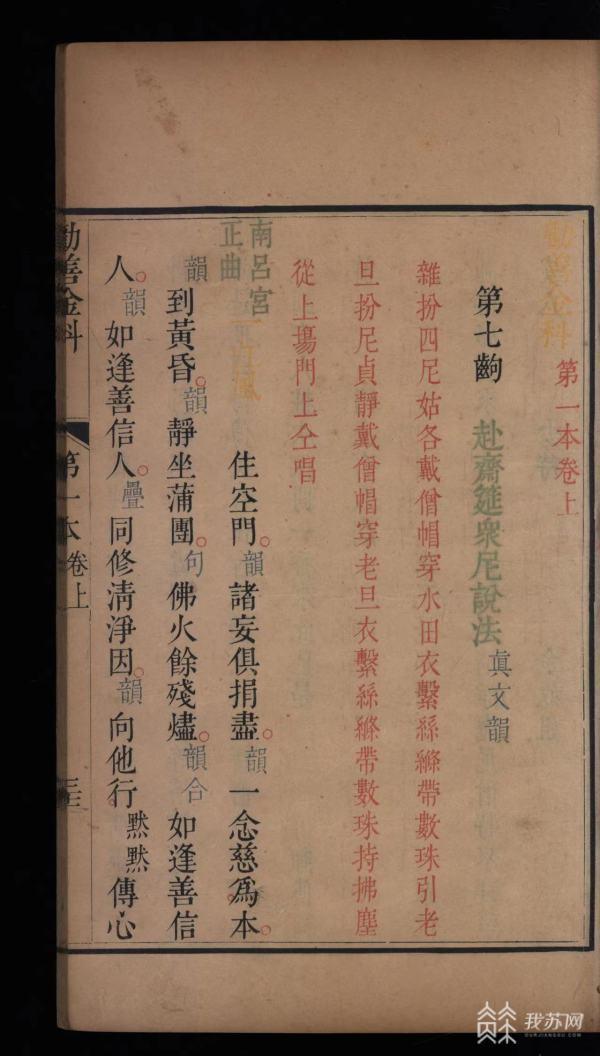 勸善金科
第一本卷上
第七齣 赴齋筵衆尼說法 眞文韻
雜扮四尼姑各戴僧帽穿水田衣繫絲縧帶數珠引老
旦扮尼貞靜戴僧帽穿老旦衣繫絲縧帶數珠持拂塵
從上塲門上仝唱
南呂宮
正曲
一江風
住空門。韻諸妄俱捐盡。韻一念慈爲本。
韻到黃昏。韻靜坐蒲團。句佛火餘殘燼。韻合如逢善信
人。韻如逢善信人。疊同修淸淨因。韻向他行默默傳心
勸善金科
第一本卷上
三三
我苏网
OURJIANGSU.COM